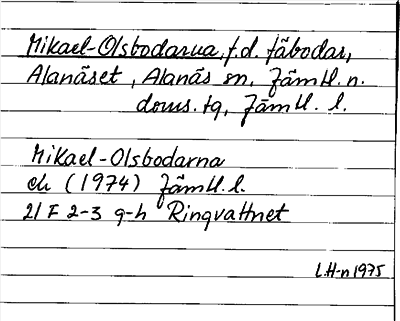 Mikael-Olsbodarna, f.d. fäbodar,
Alanäset, Alanäs sn, Jämtl. n.
doms. tg, Jämtl. l.
Mikael-Olsbodarna
ek (1974) Jämtl. l.
21 F 2-3 g-h Ringvattnet
L.H-n 1975